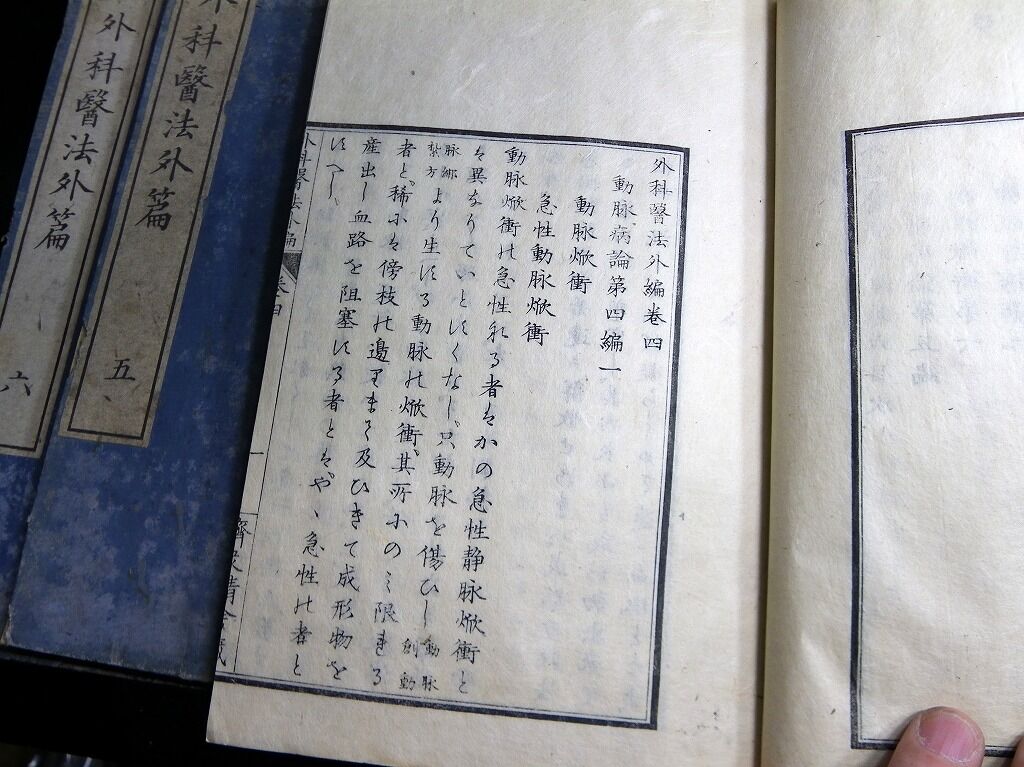 外科醫法外編巻四
動脉病論第四編一
動脉焮衝
急性動脉焮衝
動脉焮衝の急性なる者はかの急性静脉焮衝と
は異なりていとすくなし只動脉を傷ひし動脉創動
脉綁紮方より生する動脉の焮衝其所にのミ限れる
者と稀には傍枝の邉りまて及ひきて成形物を
産出し血路を阻塞する者とはや、急性の者と
すへし
外科醫法外編 巻四 一
外科醫法外篇 五
外科醫法外篇 六